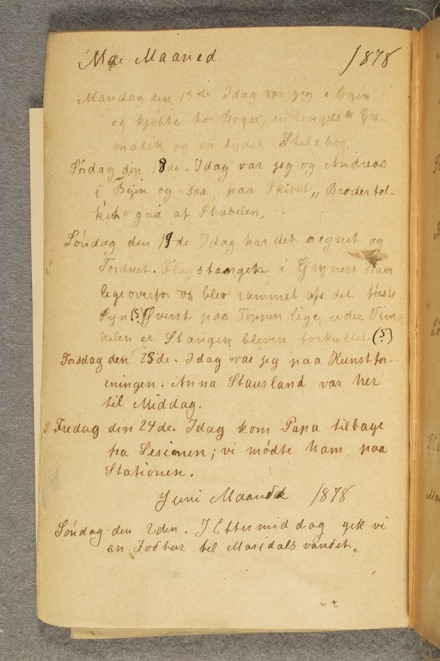 Mae Maaned 1878
Mandag den 13de Idag var jeg i Byen
og kjøbte to Bøger, en engelsk Gra-
matik og en tydsk Stilebog.
Søndag den 18de. Idag var jeg og Andreas
i Byen og saa paa Skibet „Broderfol-
ket" gaa af Stabelen.
Søndag den 19de Idag har det regnet og
Tordnet. Flagstangen i Gjsyners Have
lige overfor os blev rammet af det første
Lyn (5) Øverst paa Toppen lige under Vim-
pelen er Stangen bleven forkullet (5)
Torsdag den 23de. Idag var jeg paa Kunstfor-
eningen. Anna Stausland var her
til Middag.
Fredag den 24de. Idag kom Papa tilbage
fra Sesionen; vi mødte ham paa
Stationen.
Juni Maaned 1878
Søndag den 2den. I Eftermiddag gik vi
en Fodtur til Maridals vandet.